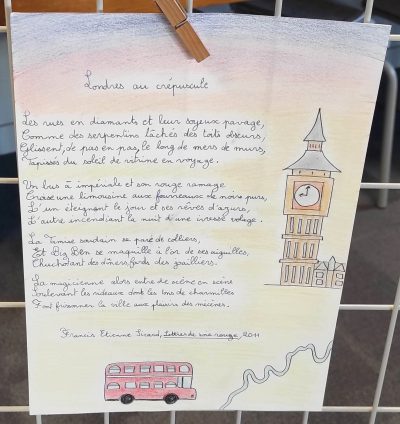 Londres au crépuscule
Les rues en diamants et leur soyeux pavage,
Comme des serpentins lâchés des toits obscurs,
Glissent, de pas en pas, le long de mers de murs,
Tapissés du soleil de vitrine en voyage.
Un bus à impériale et son rouge ramage
Croise une limousine aux fourreaux de noirs purs,
L'un éteignant le jour et ses rêves d'azurs,
L'autre incendiant la nuit d'une ivresse volage.
La Tamise soudain se pare de colliers,
Et Big Ben se maquille à l'or de ses aiguilles,
Chuchotant des dîners fards des joailliers.
La magicienne alors entre de scène en scène
Soulevant les rideaux dont les bas de charmilles
Font frissonner la ville aux plaisirs des mécènes.
Francis Etienne Sicard, Lettres de soie rouge, 2011